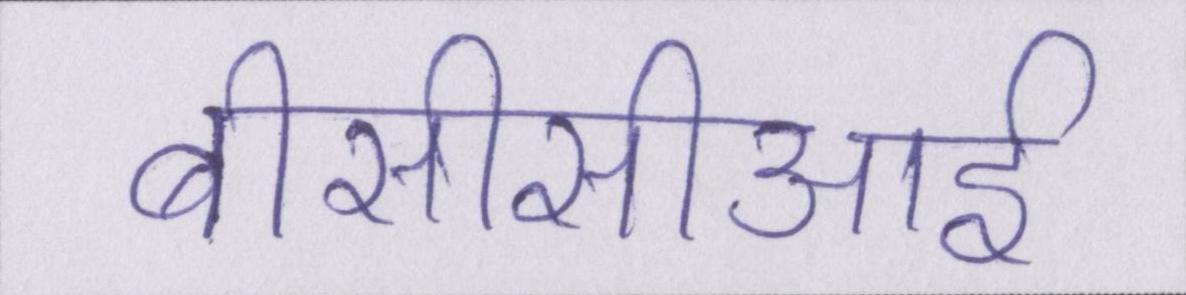 बीसीसीआई